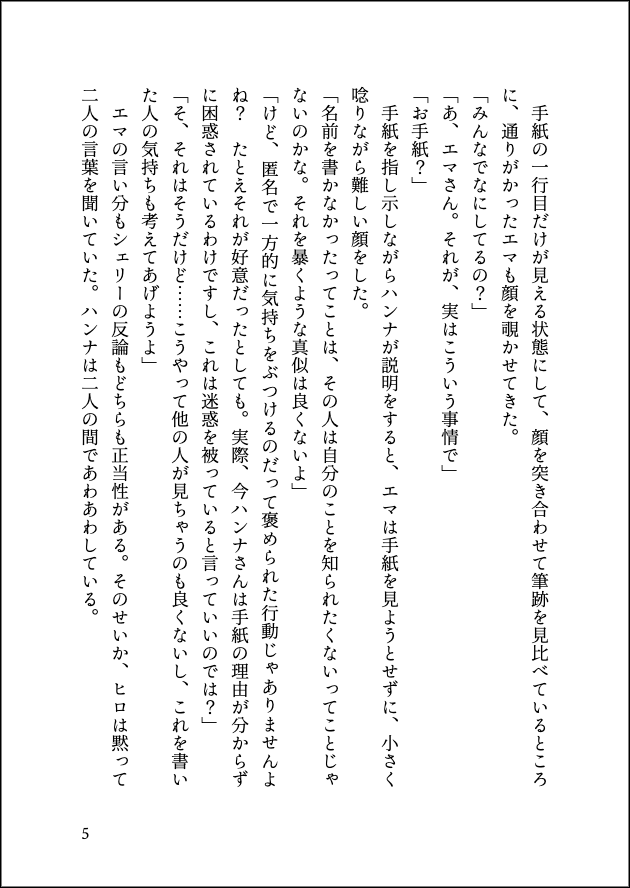 手紙の一行目だけが見える状態にして、顔を突き合わせて筆跡を見比べているところ
に、通りがかったエマも顔を覗かせてきた。
「みんなでなにしてるの？」
「あ、エマさん。それが、実はこういう事情で」
「お手紙？」
　手紙を指し示しながらハンナが説明をすると、エマは手紙を見ようとせずに、小さく
唸りながら難しい顔をした。
「名前を書かなかったってことは、その人は自分のことを知られたくないってことじゃ
ないのかな。それを暴くような真似は良くないよ」
「けど、匿名で一方的に気持ちをぶつけるのだって褒められた行動じゃありませんよ
ね？　たとえそれが好意だったとしても。実際、今ハンナさんは手紙の理由が分からず
に困惑されているわけですし、これは迷惑を被っていると言っていいのでは？」
「そ、それはそうだけど……こうやって他の人が見ちゃうのも良くないし、これを書い
た人の気持ちも考えてあげようよ」
　エマの言い分もシェリーの反論もどちらも正当性がある。そのせいか、ヒロは黙って
二人の言葉を聞いていた。ハンナは二人の間であわあわしている。
5